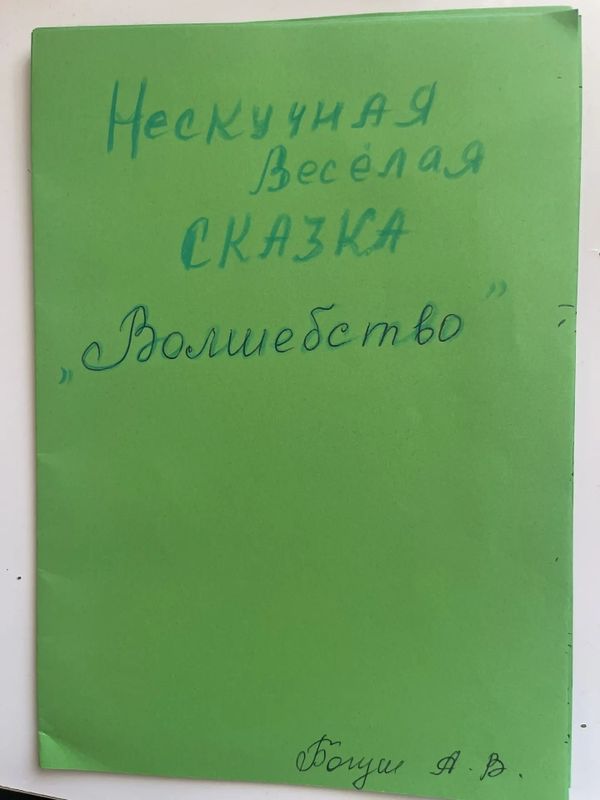 Нескучная
Весёлая
СКАЗКА
„Волшебство”
Богуш А. В.